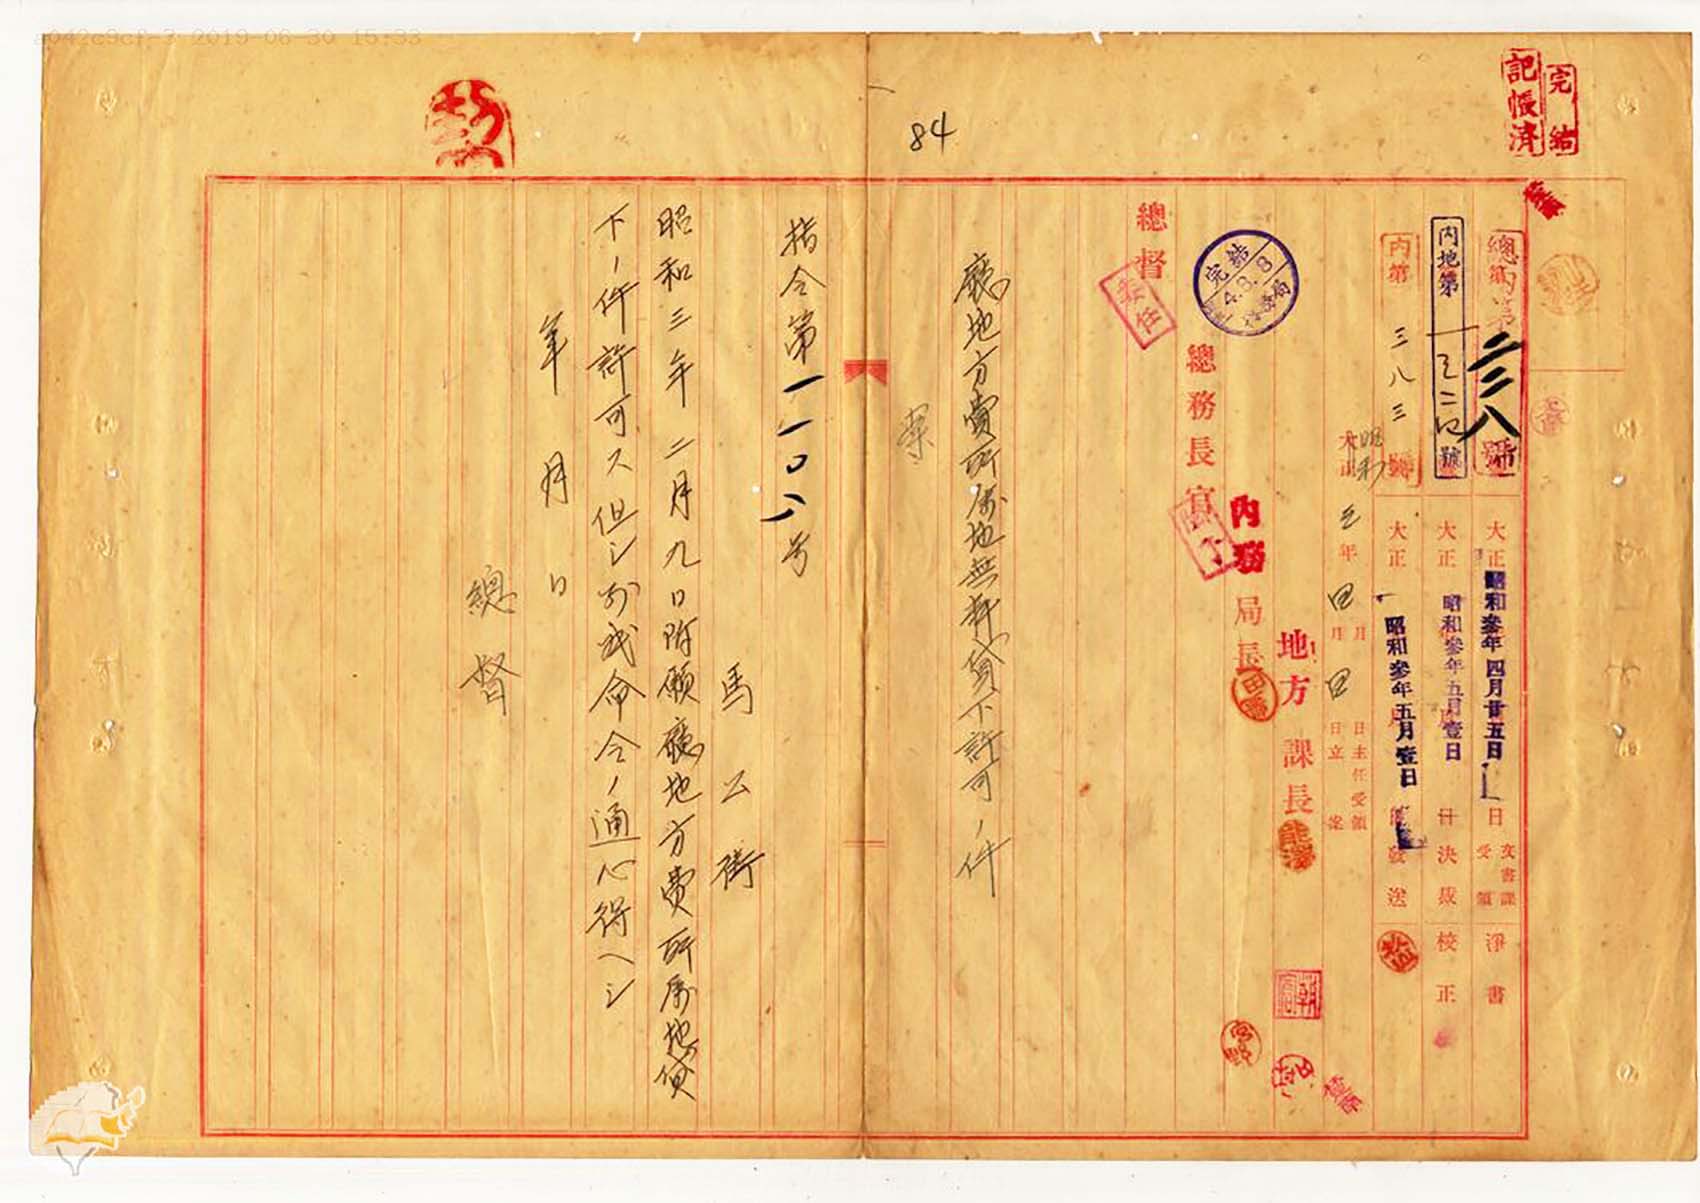 a042c9cf-7 2019-06-30 15:33
84
完結
記帳濟
總第二三八號
大正 昭和參年四月廿五日
日 文書課受領
淨書
內地第三二〇號
大正 昭和參年五月壹日
日決裁
校正
內第三八三號
大正 昭和參年五月壹日
發送
大正 昭和三年四月四日立案
月 日主任受領
地方課長
內務局長
總務長官
完結
4.8.8
總督
委任
廳地方費所屬地無料貸下許可ノ件
案
指令第一一〇八号
馬公街
昭和三年二月九日附願廳地方費所屬地貸
下ノ件許可ス但シ別紙命令ノ通心得ヘシ
年月日
總督